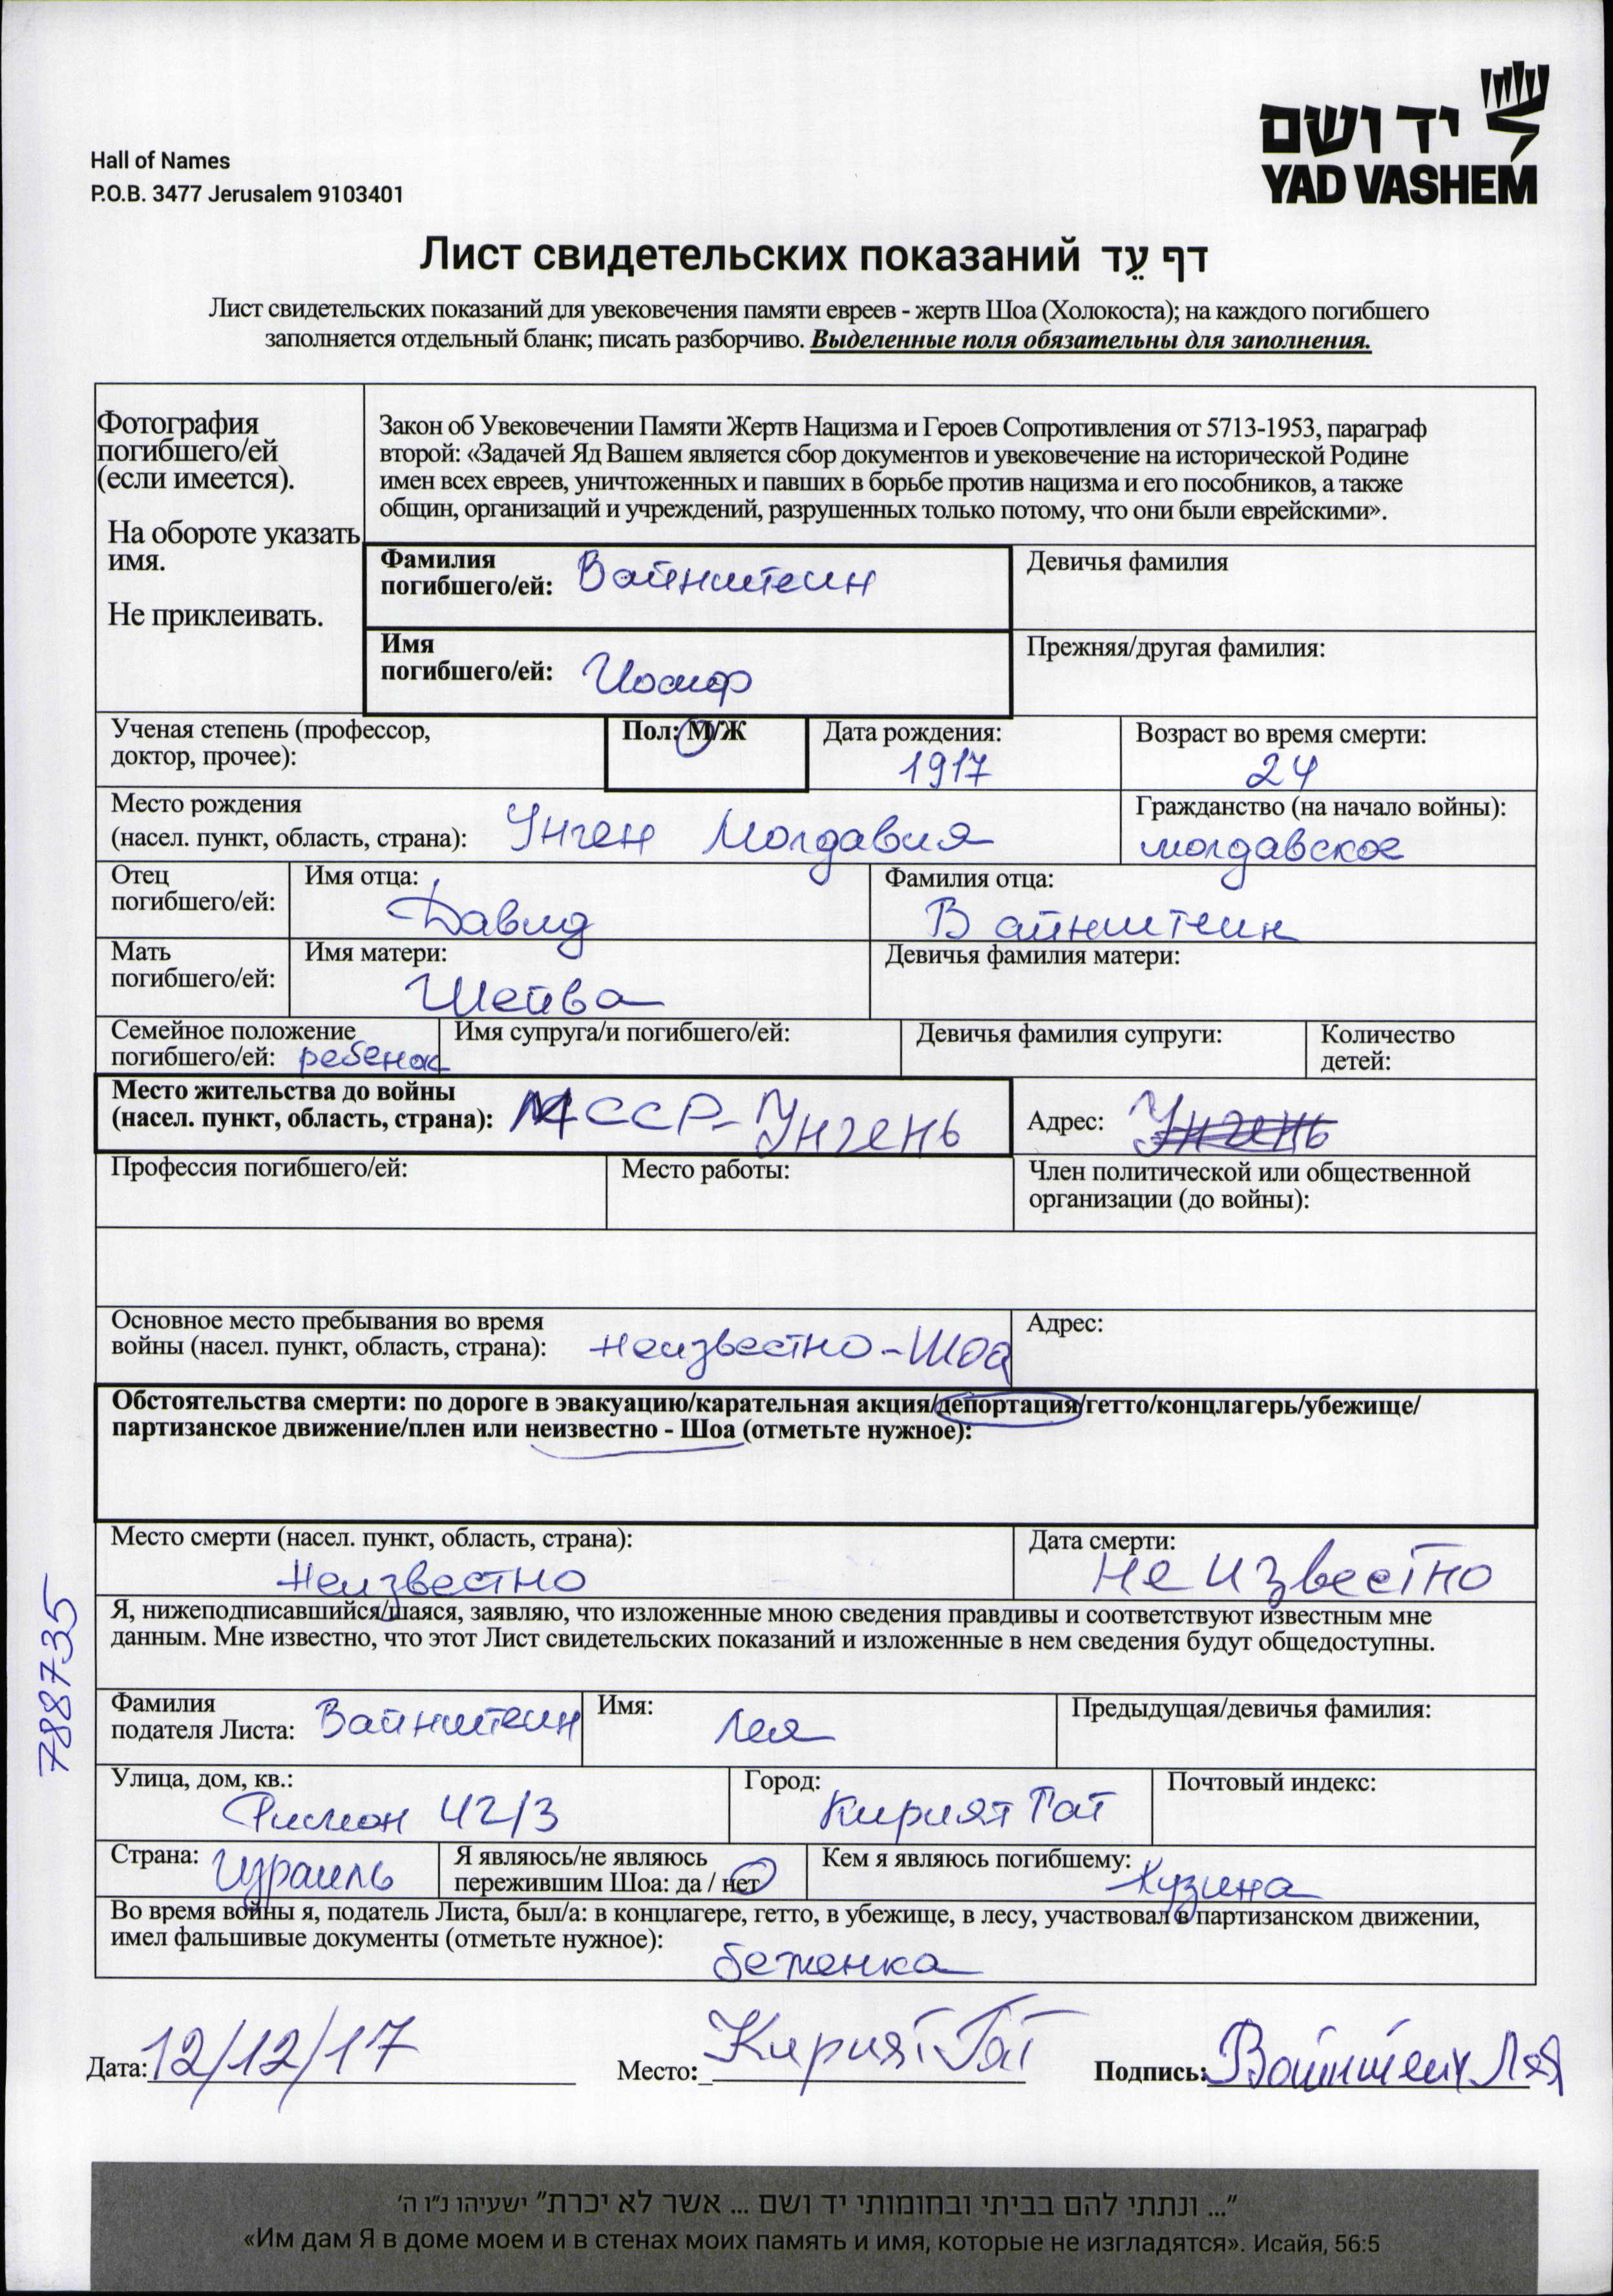 Hall of Names
P.O.B. 3477 Jerusalem 9103401
יד ושם
YAD VASHEM
Лист свидетельских показаний דף עֵד
Лист свидетельских показаний для увековечения памяти евреев - жертв Шоа (Холокоста); на каждого погибшего
заполняется отдельный бланк; писать разборчиво. Выделенные поля обязательны для заполнения.
Фотография
погибшего/ей
(если имеется).
На обороте указать
имя.
Не приклеивать.
Закон об Увековечении Памяти Жертв Нацизма и Героев Сопротивления от 5713-1953, параграф
второй: «Задачей Яд Вашем является сбор документов и увековечение на исторической Родине
имен всех евреев, уничтоженных и павших в борьбе против нацизма и его пособников, а также
общин, организаций и учреждений, разрушенных только потому, что они были еврейскими».
Фамилия
погибшего/ей: Вайнштеин
Девичья фамилия
Имя
погибшего/ей: Иосиф
Прежняя/другая фамилия:
Ученая степень (профессор,
доктор, прочее):
Пол: М/Ж
Дата рождения:
1917
Возраст во время смерти:
24
Место рождения
(насел. пункт, область, страна): Унген Молдавия
Гражданство (на начало войны):
молдавское
Отец
погибшего/ей:
Имя отца:
Давид
Фамилия отца:
Вайнштеин
Мать
погибшего/ей:
Имя матери:
Шейва
Девичья фамилия матери:
Семейное положение
погибшего/ей: ребенок
Имя супруга/и погибшего/ей:
Девичья фамилия супруги:
Количество
детей:
Место жительства до войны
(насел. пункт, область, страна): МССР-Унгень
Адрес: Унгень
Профессия погибшего/ей:
Место работы:
Член политической или общественной
организации (до войны):
Основное место пребывания во время
войны (насел. пункт, область, страна): неизвестно-Шоа
Адрес:
Обстоятельства смерти: по дороге в эвакуацию/карательная акция/депортация/гетто/концлагерь/убежище/
партизанское движение/плен или неизвестно - Шоа (отметьте нужное):
Место смерти (насел. пункт, область, страна):
неизвестно
Дата смерти:
неизвестно
Я, нижеподписавшийся/шаяся, заявляю, что изложенные мною сведения правдивы и соответствуют известным мне
данным. Мне известно, что этот Лист свидетельских показаний и изложенные в нем сведения будут общедоступны.
788735
Фамилия
подателя Листа: Вайнштеин
Имя:
Лея
Предыдущая/девичья фамилия:
Улица, дом, кв.:
42/3
Город:
Кирият Гат
Почтовый индекс:
Страна: Израиль
Я являюсь/не являюсь
пережившим Шоа: да / нет
Кем я являюсь погибшему:
Кузина
Во время войны я, податель Листа, был/а: в концлагере, гетто, в убежище, в лесу, участвовал в партизанском движении,
имел фальшивые документы (отметьте нужное):
беженка
Дата: 12/12/17
Место: Кирият Гат
Подпись: Вайнштеин Лея
"... ונתתי להם בביתי ובחומותי יד ושם ... אשר לא יכרת" ישעיהו נ"ו ה'
«Им дам Я в доме моем и в стенах моих память и имя, которые не изгладятся». Исайя, 56:5